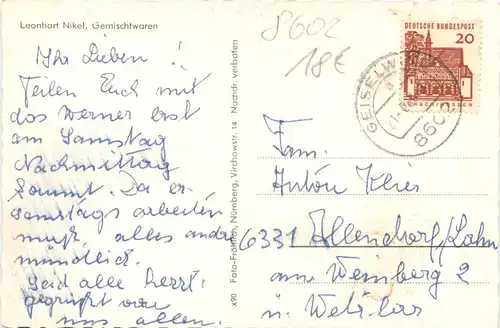 Leonhart Nikel, Gemischtwaren
Ihr Lieben!
Teilen Euch mit
das Werner erst
am Samstag
Nachmittag
kommt. Da er
samstags arbeiten
muß, alles andre
mündlich.
Seid alle herzl.
gegrüßt von
uns allen.
x90 Foto-Fröhlich, Nürnberg, Virchowstr. 14 Nachdr. verboten
8602
18€
DEUTSCHE BUNDESPOST
20
GEISELW
8602
Fam.
Anton Klier
6331 Allendorf/Lahn
am Weinberg 2
ü. Wetzlar